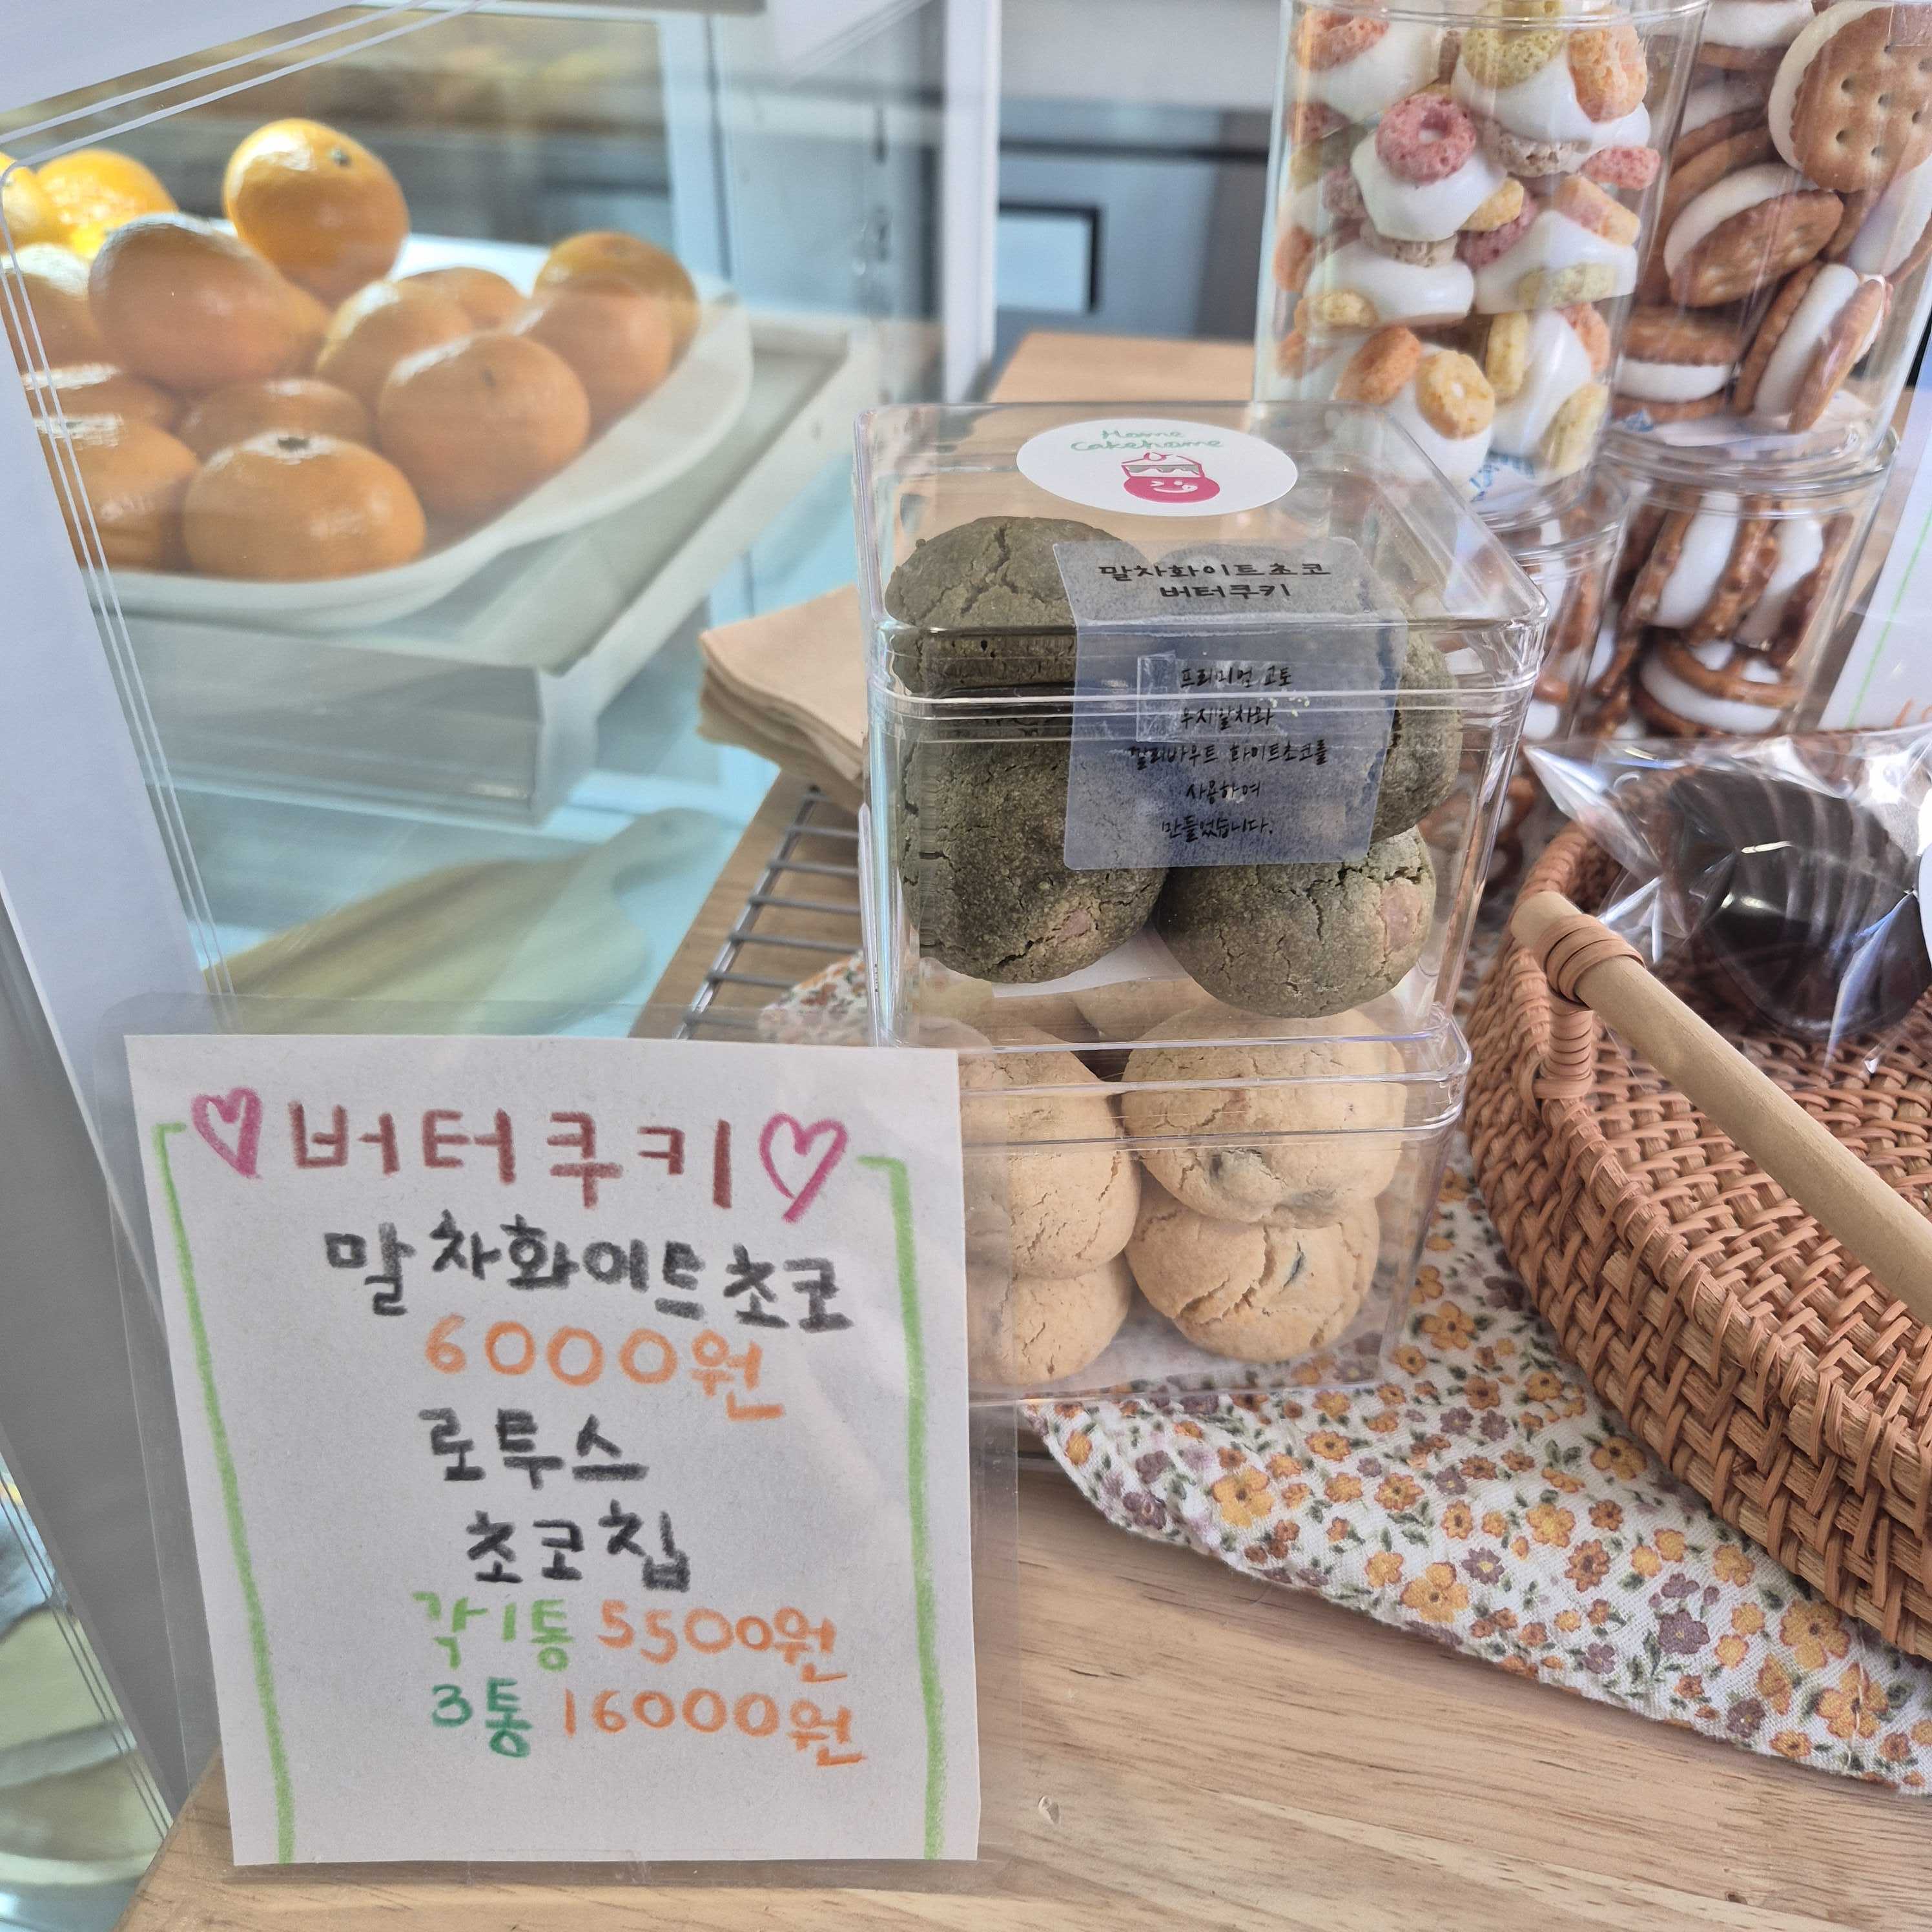 Home
Cakehome
말차화이트초코
버터쿠키
프리미엄 교토
우지말차와
깔리바우트 화이트초코를
사용하여
만들었습니다.
버터쿠키
말차화이트초코
6000원
로투스
초코칩
각1통 5500원
3통 16000원